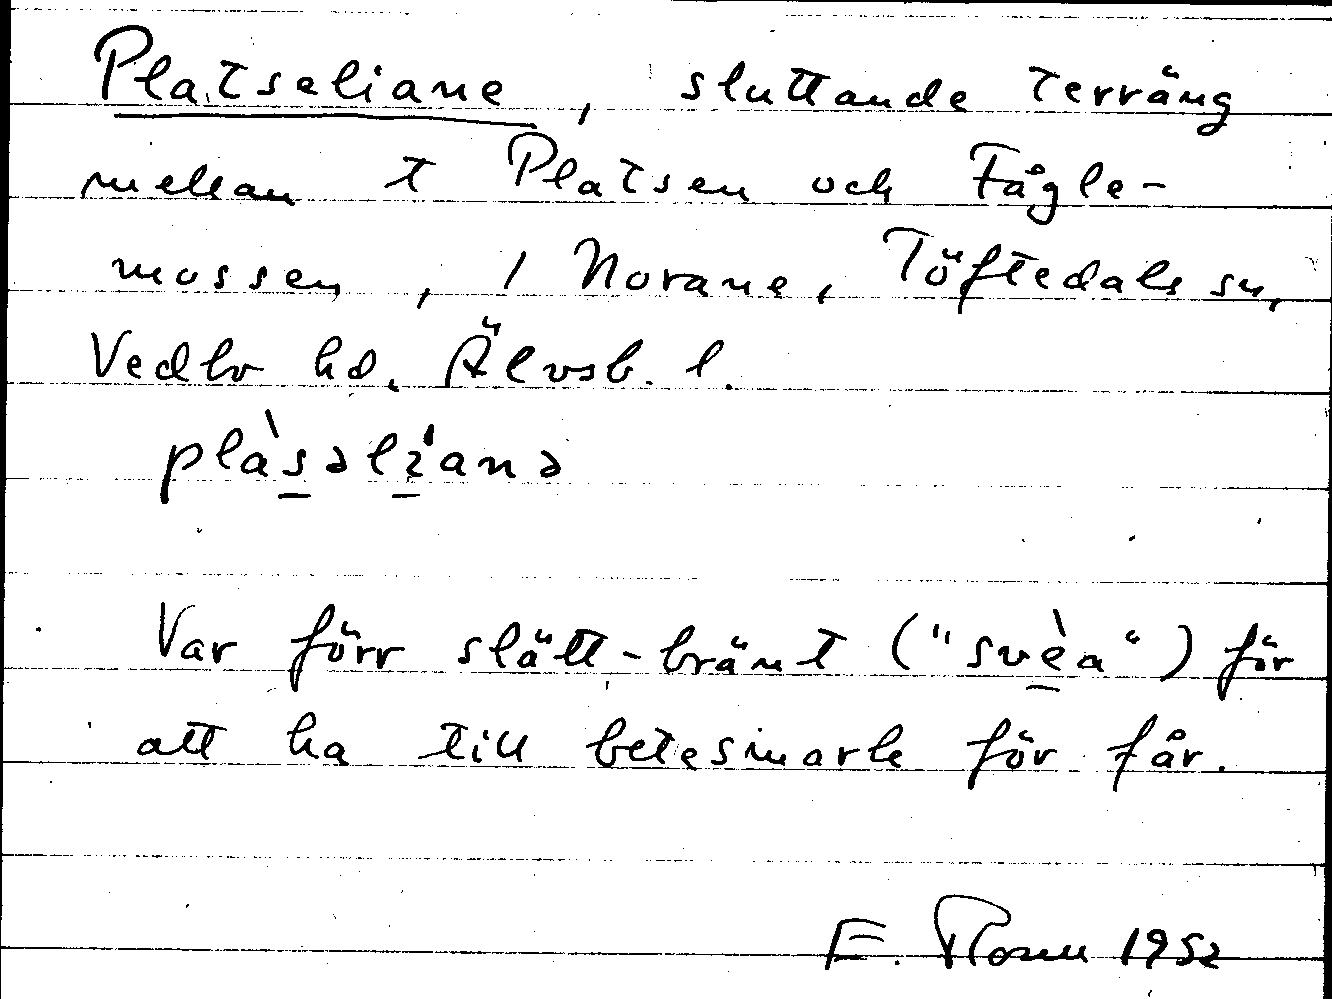 Platseliane, sluttande terräng
mellan t Platsen och Fågle-
mossen, 1 Norane, Töftedals sn,
Vedbo hd. Älvsb. l.
plàsəlɩ'anə
Var förr slått-bränt ("svèa") för
att ha till betesmark för får.
E. 1952